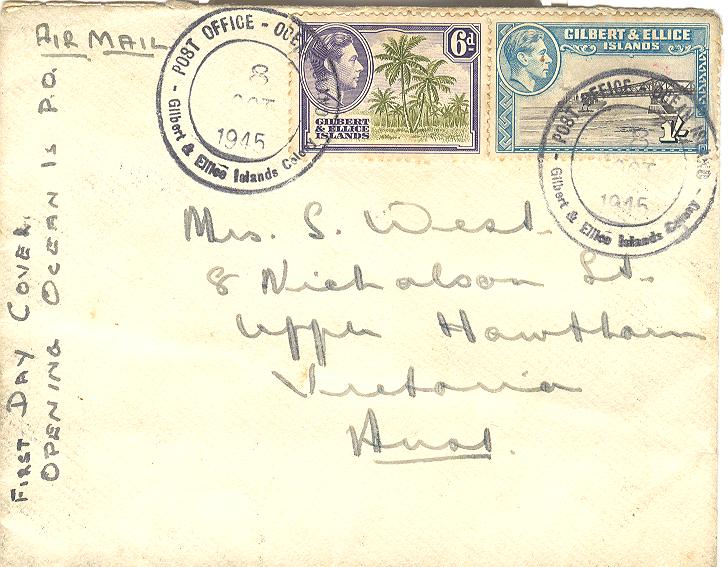 AIR MAIL
- POST OFFICE - OCEAN
8
OCT
1945
- Gilbert & Ellice Islands Colony
6d
GILBERT
& ELLICE
ISLANDS
GILBERT & ELLICE
ISLANDS
1/-
- POST OFFICE - OCEAN ISLAND -
8
OCT
1945
Gilbert & Ellice Islands Colony
FIRST DAY COVER
OPENING OCEAN IS P.O.
Mrs. S. West.
8 Nicholson St.
Upper Hawthorn
Victoria
Aust.